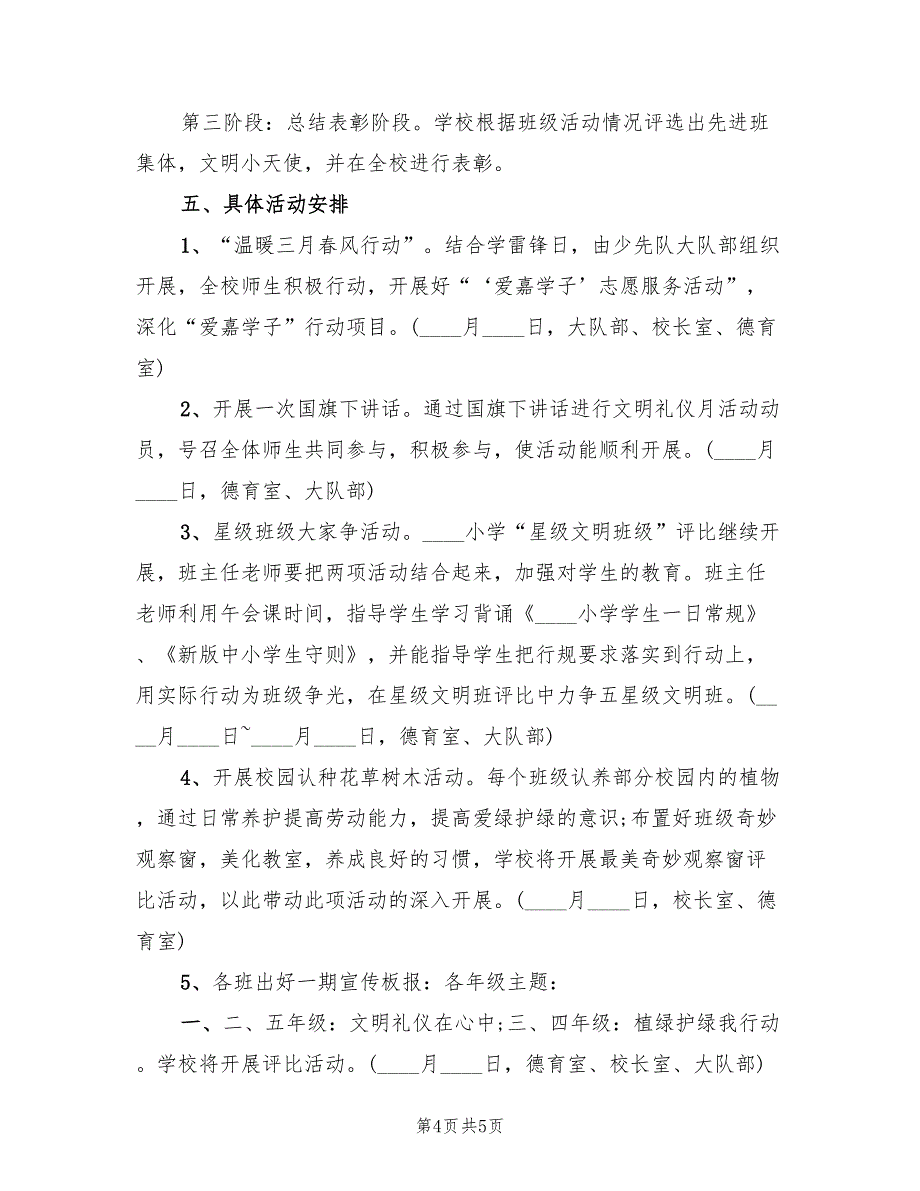 第三阶段：总结表彰阶段。学校根据班级活动情况评选出先进班
集体，文明小天使，并在全校进行表彰。
五、具体活动安排
1、“温暖三月春风行动”。结合学雷锋日，由少先队大队部组织
开展，全校师生积极行动，开展好“‘爱嘉学子’志愿服务活动”，
深化“爱嘉学子”行动项目。(____月____日，大队部、校长室、德育
室)
2、开展一次国旗下讲话。通过国旗下讲话进行文明礼仪月活动动
员，号召全体师生共同参与，积极参与，使活动能顺利开展。(____月
____日，德育室、大队部)
3、星级班级大家争活动。____小学“星级文明班级”评比继续开
展，班主任老师要把两项活动结合起来，加强对学生的教育。班主任
老师利用午会课时间，指导学生学习背诵《____小学学生一日常规》
、《新版中小学生守则》，并能指导学生把行规要求落实到行动上，
用实际行动为班级争光，在星级文明班评比中力争五星级文明班。(__
__月____日~____月____日，德育室、大队部)
4、开展校园认种花草树木活动。每个班级认养部分校园内的植物
，通过日常养护提高劳动能力，提高爱绿护绿的意识;布置好班级奇妙
观察窗，美化教室，养成良好的习惯，学校将开展最美奇妙观察窗评
比活动，以此带动此项活动的深入开展。(____月____日，校长室、德
育室)
5、各班出好一期宣传板报：各年级主题：
一、二、五年级：文明礼仪在心中;三、四年级：植绿护绿我行动
。学校将开展评比活动。(____月____日，德育室、校长室、大队部)
第4页共5页